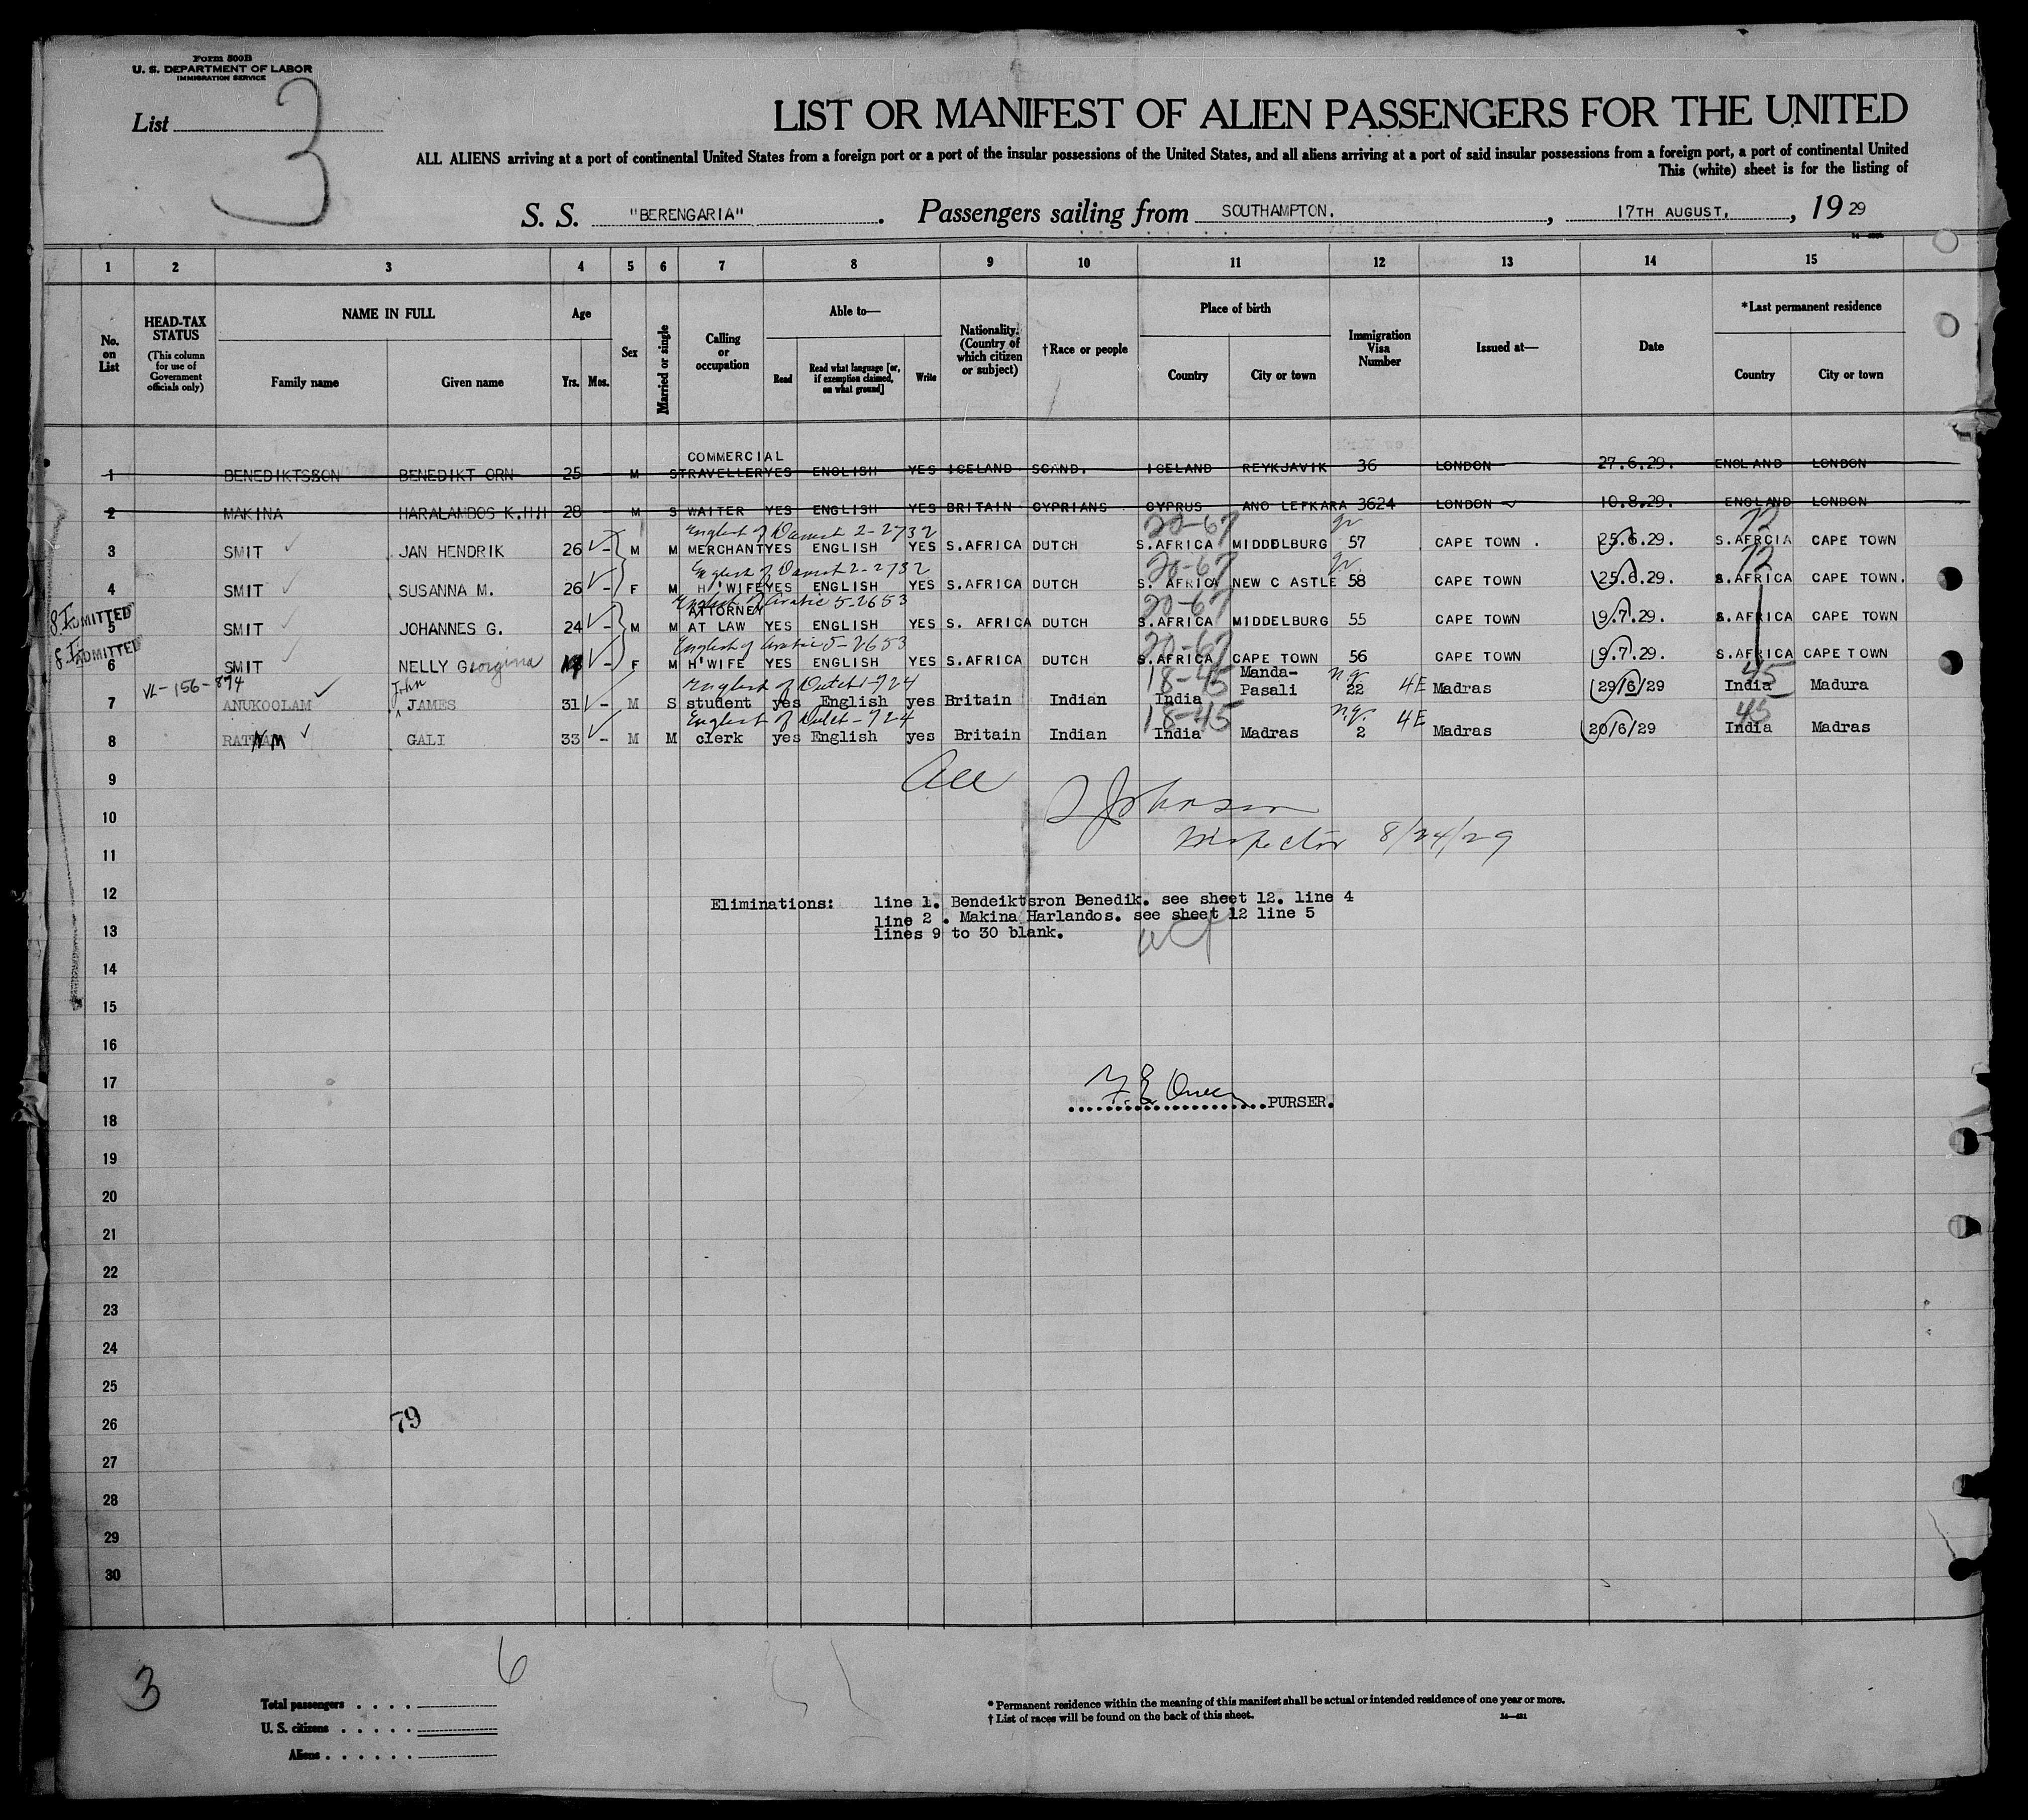 Form 500B
U. S. DEPARTMENT OF LABOR
IMMIGRATION SERVICE
List 3
LIST OR MANIFEST OF ALIEN PASSENGERS FOR THE UNITED
ALL ALIENS arriving at a port of continental United States from a foreign port or a port of the insular possessions of the United States, and all aliens arriving at a port of said insular possessions from a foreign port, a port of continental United
This (white) sheet is for the listing of
S. S. "BERENGARIA". Passengers sailing from SOUTHAMPTON., 17TH AUGUST, , 19 29
1 2 3 4 5 6 7 8 9 10 11 12 13 14 15
No. on List
HEAD-TAX STATUS (This column for use of Government officials only)
NAME IN FULL
Family name Given name
Age
Yrs. Mos.
Sex
Married or single
Calling or occupation
Able to—
Read
Read what language [or, if exemption claimed, on what ground]
Write
Nationality. (Country of which citizen or subject)
†Race or people
Place of birth
Country City or town
Immigration Visa Number
Issued at—
Date
*Last permanent residence
Country City or town
COMMERCIAL
1 BENEDIKTSSON BENEDIKT ORN 25 - M S TRAVELLER YES ENGLISH YES ICELAND SCAND. ICELAND REYKJAVIK 36 LONDON 27.6.29. ENGLAND LONDON
2 MAKINA HARALAMBOS K.H.H 28 - M S WAITER YES ENGLISH YES BRITAIN CYPRIANS CYPRUS ANO LEFKARA 3624 LONDON 10.8.29. ENGLAND LONDON
2-2732 20-67 72
3 SMIT JAN HENDRIK 26 - M M MERCHANT YES ENGLISH YES S.AFRICA DUTCH S.AFRICA MIDDELBURG 57 CAPE TOWN . 25.6.29. S.AFRCIA CAPE TOWN
2-2732 20-67 72
4 SMIT SUSANNA M. 26 - F M H'WIFE YES ENGLISH YES S.AFRICA DUTCH S. AFRICA NEW C ASTLE 58 CAPE TOWN 25.6.29. S.AFRICA CAPE TOWN.
5-2653 20-67
ADMITTED ATTORNEY
5 SMIT JOHANNES G. 24 - M M AT LAW YES ENGLISH YES S. AFRICA DUTCH S.AFRICA MIDDELBURG 55 CAPE TOWN 9.7.29. S.AFRICA CAPE TOWN
ADMITTED 5-2653 20-67
6 SMIT NELLY Georgina F M H'WIFE YES ENGLISH YES S.AFRICA DUTCH S.AFRICA CAPE TOWN 56 CAPE TOWN 9.7.29. S.AFRICA CAPE TOWN
John 18-45 Manda- 45
7 ANUKOOLAM JAMES 31 - M S student yes English yes Britain Indian India Pasali 22 4E Madras 29/6/29 India Madura
18-45 45
8 GALI 33 - M M clerk yes English yes Britain Indian India Madras 2 4E Madras 20/6/29 India Madras
9
10 Johnson
11 Inspector 8/24/29
12
Eliminations: line 1. Bendeiktsron Benedik. see sheet 12. line 4
line 2 . Makina Harlandos. see sheet 12 line 5
13
lines 9 to 30 blank.
14
15
16
17
PURSER.
18
19
20
21
22
23
24
25
26 79
27
28
29
30
3
6
Total passengers . . . .
U. S. citizens . . . . .
Aliens . . . . . .
* Permanent residence within the meaning of this manifest shall be actual or intended residence of one year or more.
† List of races will be found on the back of this sheet.